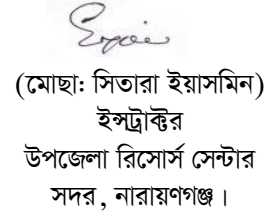 (মোছা: সিতারা ইয়াসমিন)
ইন্সট্রাক্টর
উপজেলা রিসোর্স সেন্টার
সদর, নারায়ণগঞ্জ।